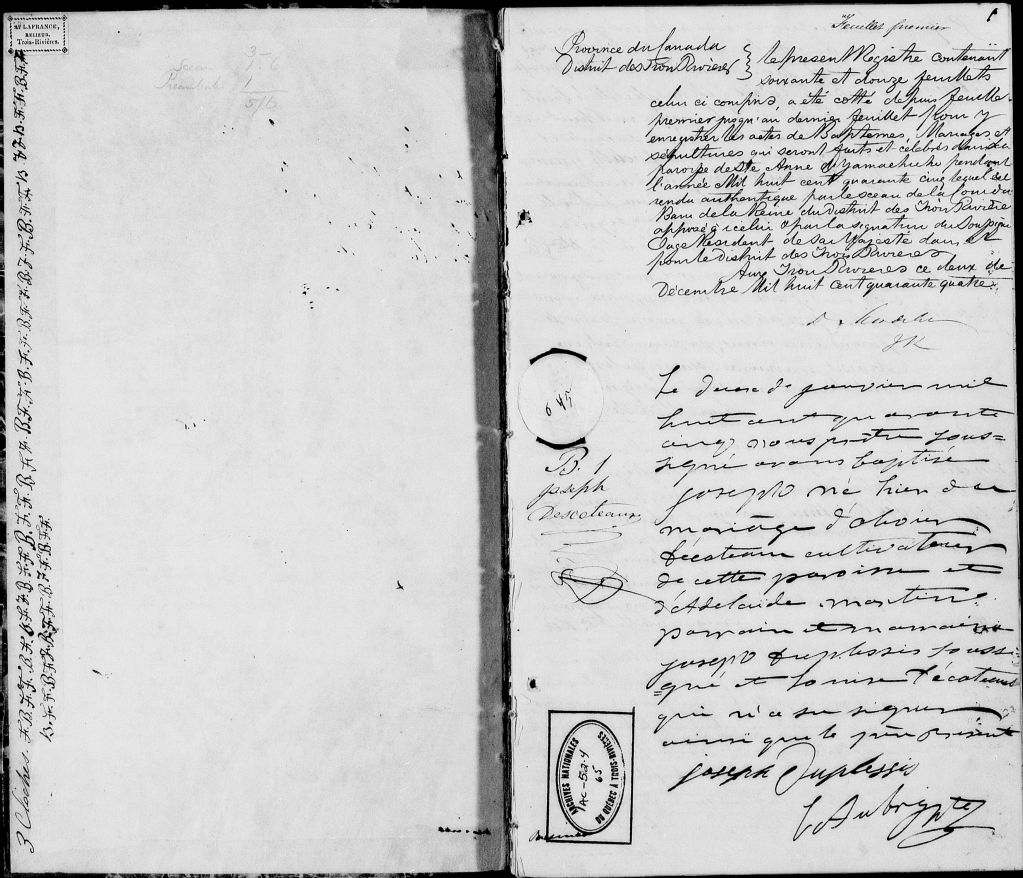 Mce LAFRANCE,
RELIEUR,
Trois-Rivières.
Sceau
Préambule 1
5/6
3 Cloches. F.B.F.F.B.F.
B.F.F.B.F.F.B.F.F.B.F.F
1
Feuillet premier
Province du Canada
District des Trois Rivières
Le présent Régistre contenant
soixante et douze feuillets
celui ci compris, a été cotté depuis feuille
premier jusqu'au dernier feuillet pour y
enregistrer les actes de Baptemes, Mariages et
sépultures qui seront faits et célébrés dans la
paroisse de Ste Anne d'Yamachiche pendant
l'année Mil huit cent quarante cinq lequel est
rendu authentique par le sceau de la Cour du
Banc de la Reine du District des Trois Rivières
apposé à icelui & par la signature du Soussigné
Juge Résident de Sa Majesté dans et
pour le District des Trois Rivières
Aux Trois Rivières ce deux de
Décembre Mil huit cent quarante quatre.
JR
645
B. 1
joseph
Descoteaux
Le deux de janvier mil
huit cent quarante
cinq nous prêtre sous=
signé avons baptisé
joseph né hier du
mariage d'olivier
Décoteau cultivateur
de cette paroisse et
d'Adelaïde martin.
parrain et marraine
joseph Duplessis soussi
=gné et Louise Décoteau
qui n'a su signer
ainsi que le père présent
joseph Duplessis
ARCHIVES NATIONALES
DU QUÉBEC À TROIS-RIVIÈRES
1AC-52-4
65